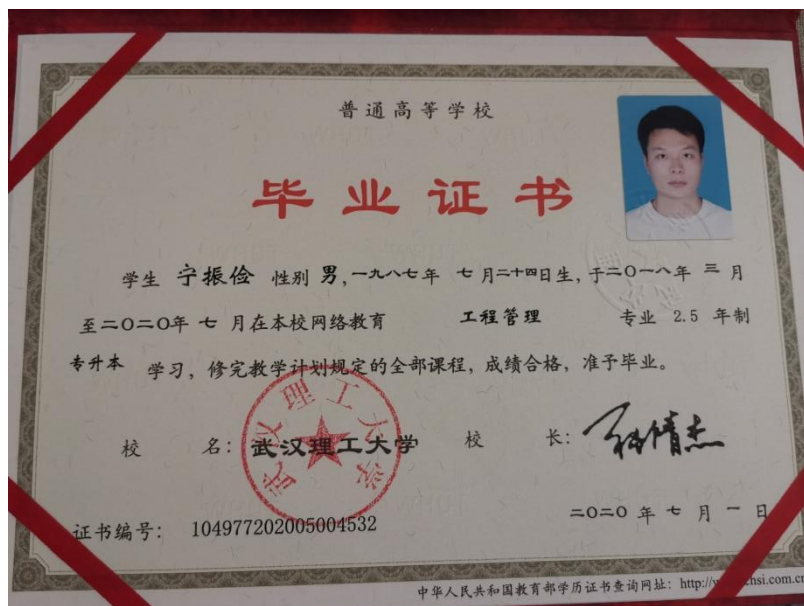 普通高等学校
毕业证书
学生 宁振俭 性别 男，一九八七年 七月二十四日生，于二〇一八年 三月
至二〇二〇年 七 月在本校网络教育 工程管理 专业 2.5 年制
专升本 学习，修完教学计划规定的全部课程，成绩合格，准予毕业。
校 名：武汉理工大学 校 长：
武汉理工大学
证书编号： 104977202005004532 二〇二〇 年 七 月 一 日
中华人民共和国教育部学历证书查询网址： http://
hsi.com.cn